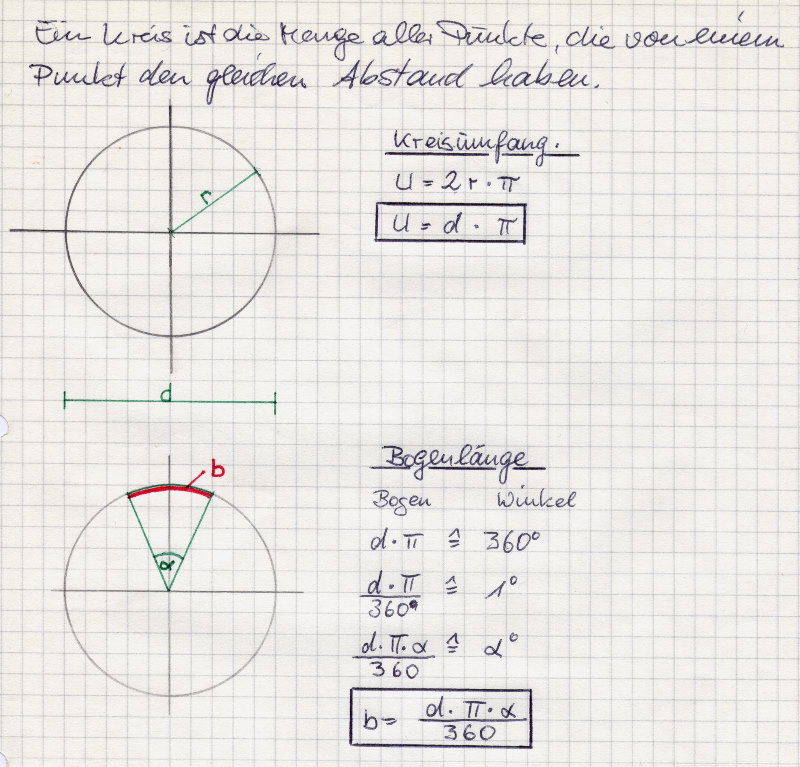 Ein Kreis ist die Menge aller Punkte, die von einem
Punkt den gleichen Abstand haben.
r
Kreisumfang.
U = 2 r · π
U = d · π
d
b
α
Bogenlänge
Bogen Winkel
d · π ≙ 360°
d · π / 360° ≙ 1°
d · π · α / 360 ≙ α°
b = d · π · α / 360